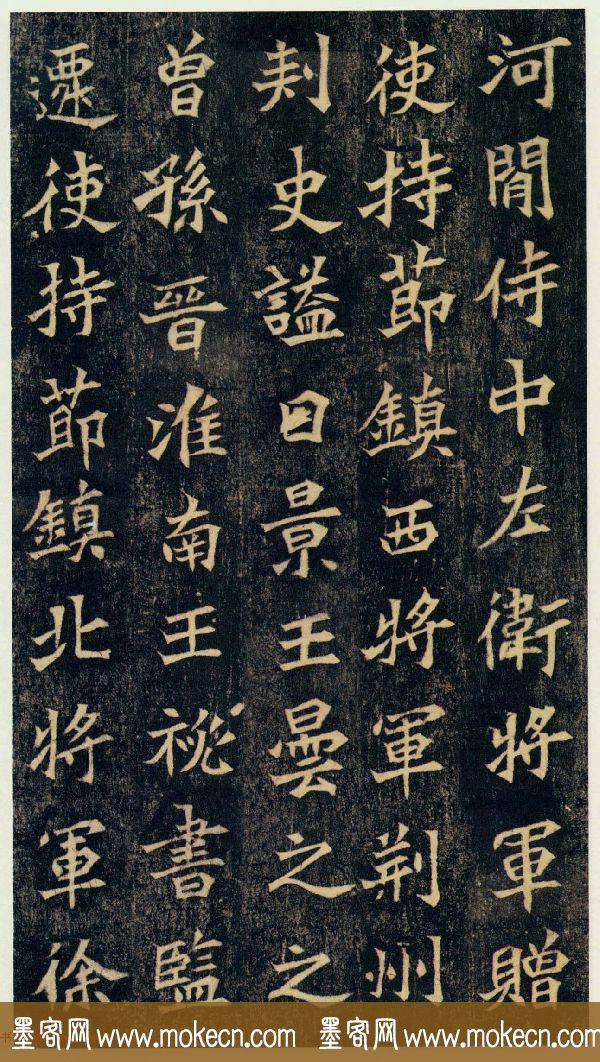 河閒侍中左衛將軍贈
使持節鎮西將軍荊州
刾史謚曰景王曇之之
曾孫晉淮南王祕書監
遷使持節鎮北將軍徐
墨客网 www.mokecn.com 墨客网 www.mokecn.com